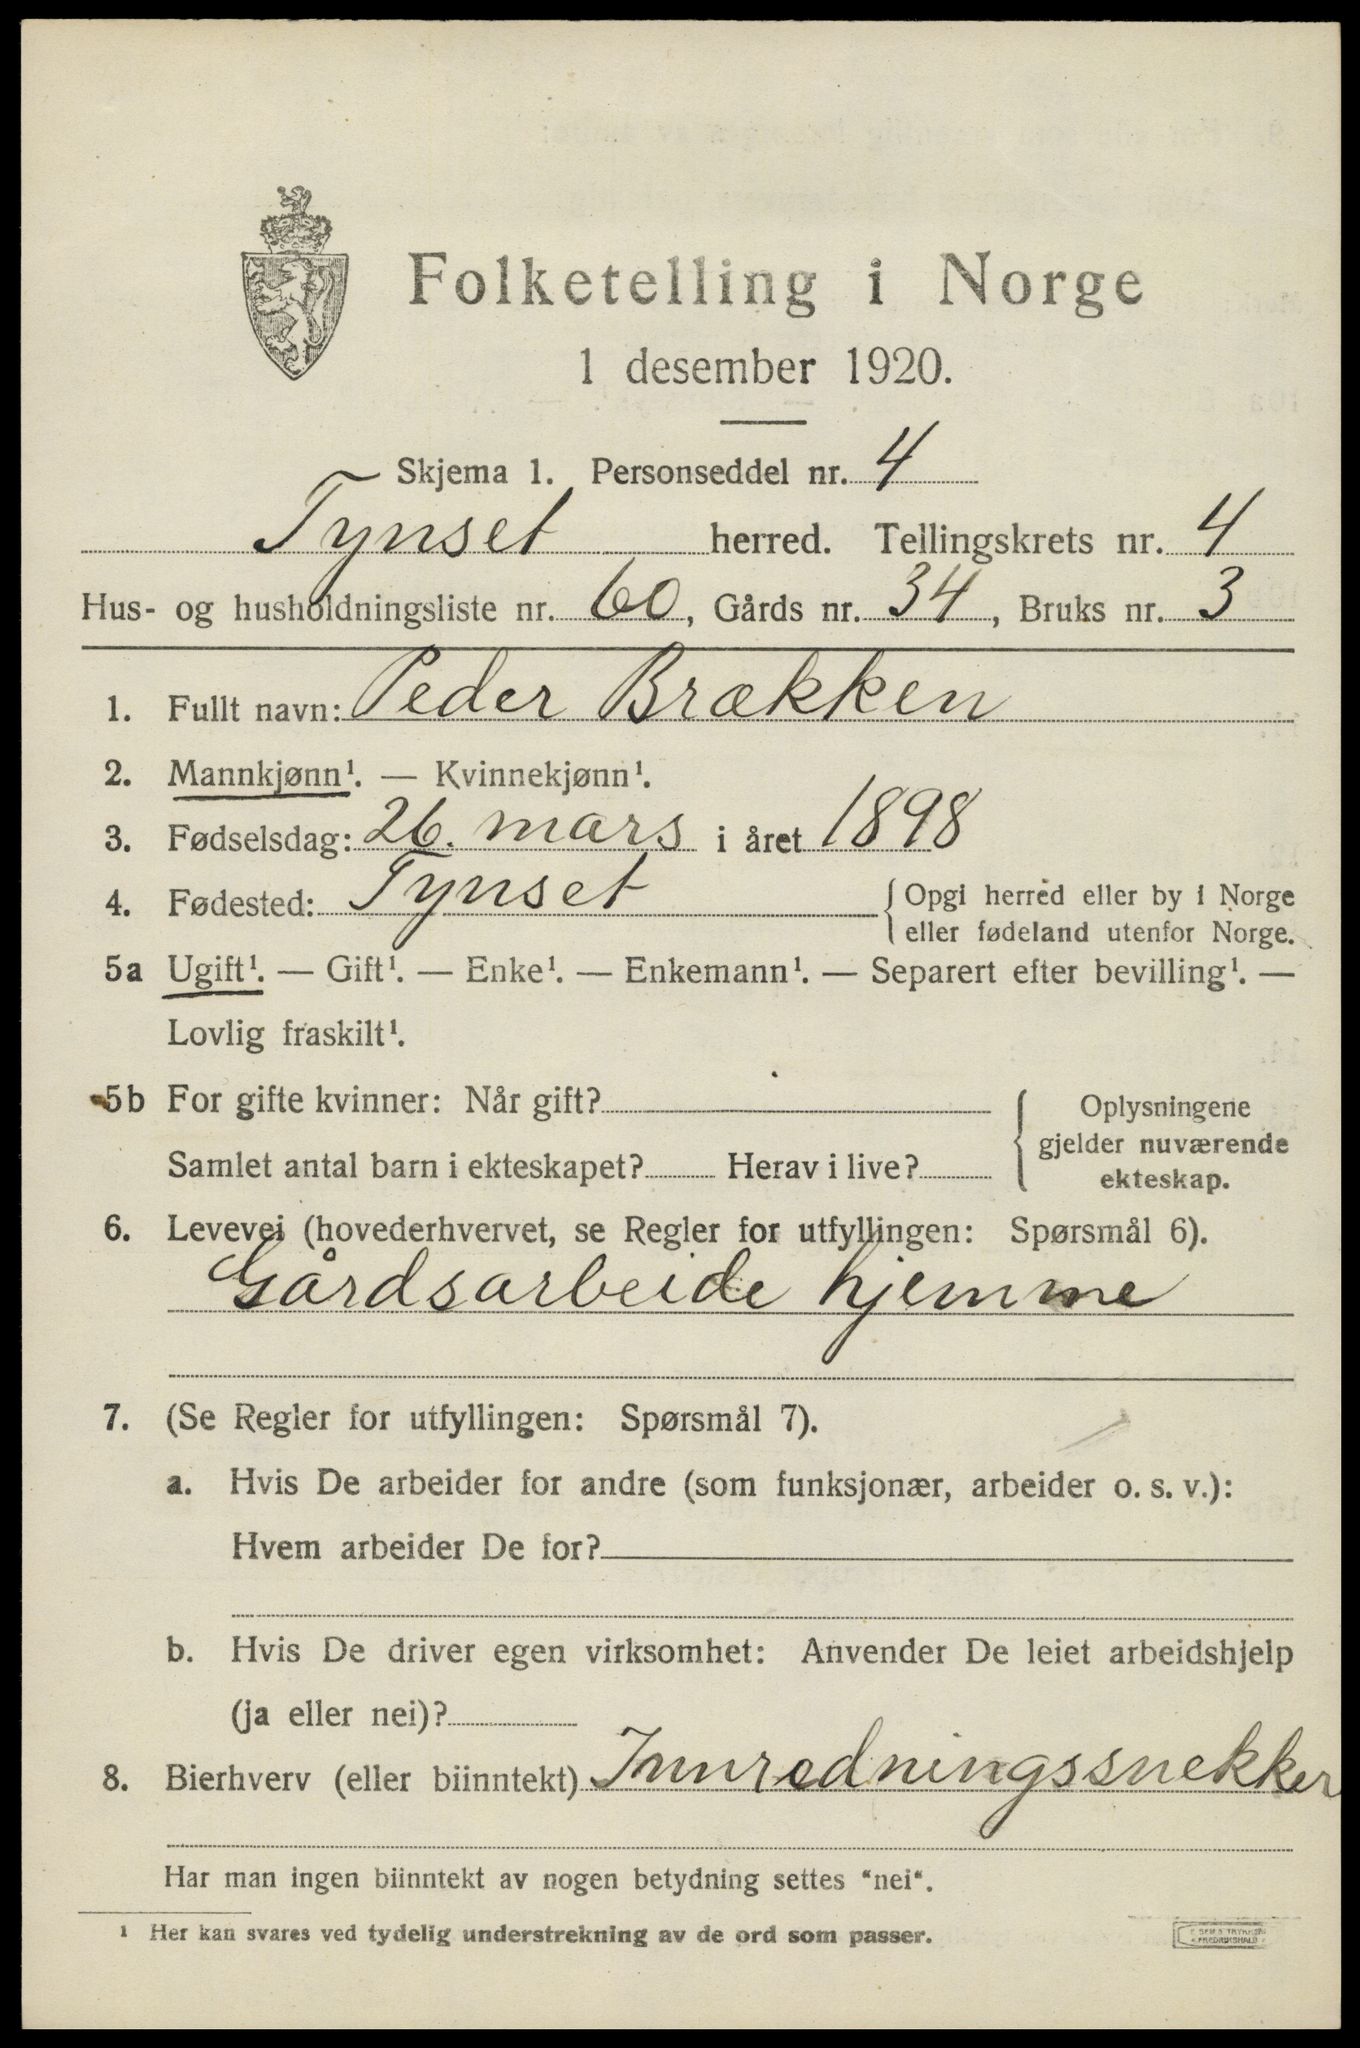 Folketelling i Norge
1 desember 1920.
Skjema 1. Personseddel nr. 4
Tynset herred. Tellingskrets nr. 4
Hus- og husholdningsliste nr. 60, Gårds nr. 34, Bruks nr. 3
1. Fullt navn: Peder Brækken
2. Mannkjønn¹. — Kvinnekjønn¹.
3. Fødselsdag: 26. mars i året 1898
4. Fødested: Tynset {Opgi herred eller by i Norge
eller fødeland utenfor Norge.
5a Ugift¹. — Gift¹. — Enke¹. — Enkemann¹. — Separert efter bevilling¹. —
Lovlig fraskilt¹.
5b For gifte kvinner: Når gift? { Oplysningene
gjelder nuværende
Samlet antal barn i ekteskapet? Herav i live? ekteskap.
6. Levevei (hovederhvervet, se Regler for utfyllingen: Spørsmål 6).
Gårdsarbeide hjemme
7. (Se Regler for utfyllingen: Spørsmål 7).
a. Hvis De arbeider for andre (som funksjonær, arbeider o. s. v.):
Hvem arbeider De for?
b. Hvis De driver egen virksomhet: Anvender De leiet arbeidshjelp
(ja eller nei)?
8. Bierhverv (eller biinntekt) Innredningssnekker
Har man ingen biinntekt av nogen betydning settes "nei".
¹ Her kan svares ved tydelig understrekning av de ord som passer.